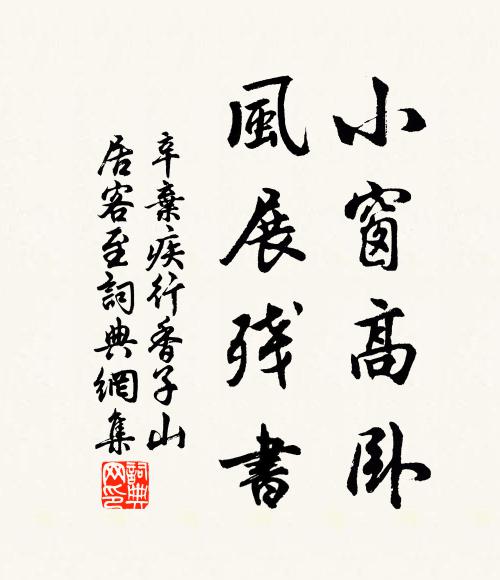 小窗高卧
風展残書
辛棄疾行香子山
居客至詞典網集
詞典網印